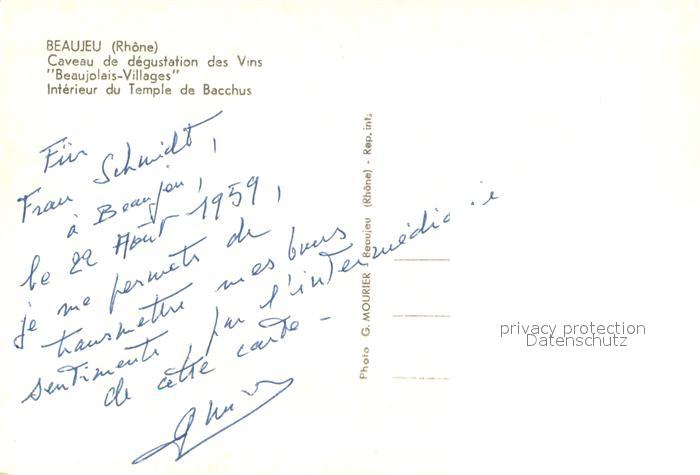 BEAUJEU (Rhône)
Caveau de dégustation des Vins
"Beaujolais-Villages"
Intérieur du Temple de Bacchus
Für
Frau Schmidt,
à Beaujeu,
le 22 Août 1959,
je me permets de
transmettre mes bons
sentiments, par l'intermédiaire
de cette carte -
Photo G. MOURIER, Beaujeu (Rhône) - Rep. int.
privacy protection
Datenschutz